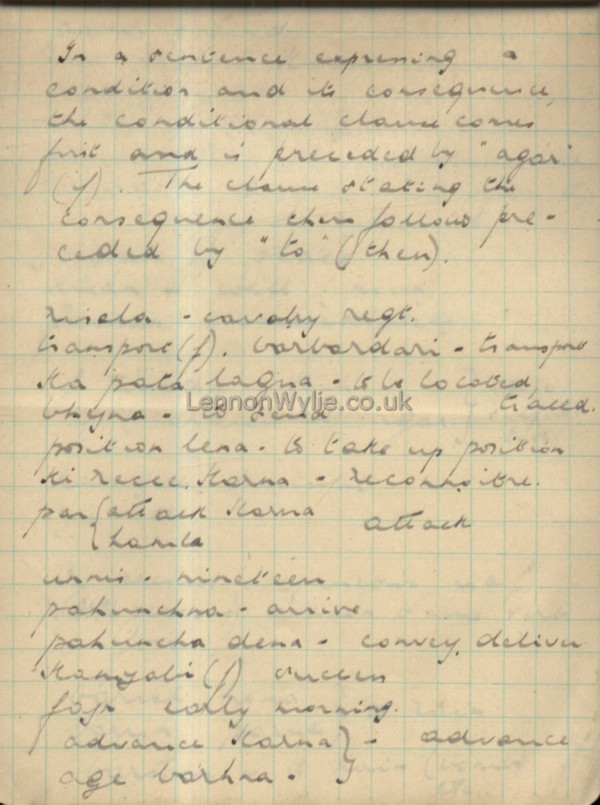 In a sentence expressing a
condition and its consequence,
the conditional clause comes
first and is preceded by "agar"
(if). The clause stating the
consequence then follows pre-
ceded by "to" (then).
risala - cavalry regt.
transport (f). barbardari - transport
ka pata lagna - to be located,
traced.
bhejna - to send
LennonWylie.co.uk
position lena - to take up position
ki recce. karna - reconnoitre.
par { attack karna attack
hamla
unnis - nineteen
pahunchna - arrive
pahuncha dena - convey, deliver
kamyabi (f) success
fajr early morning.
advance karna } - advance
age barhna -